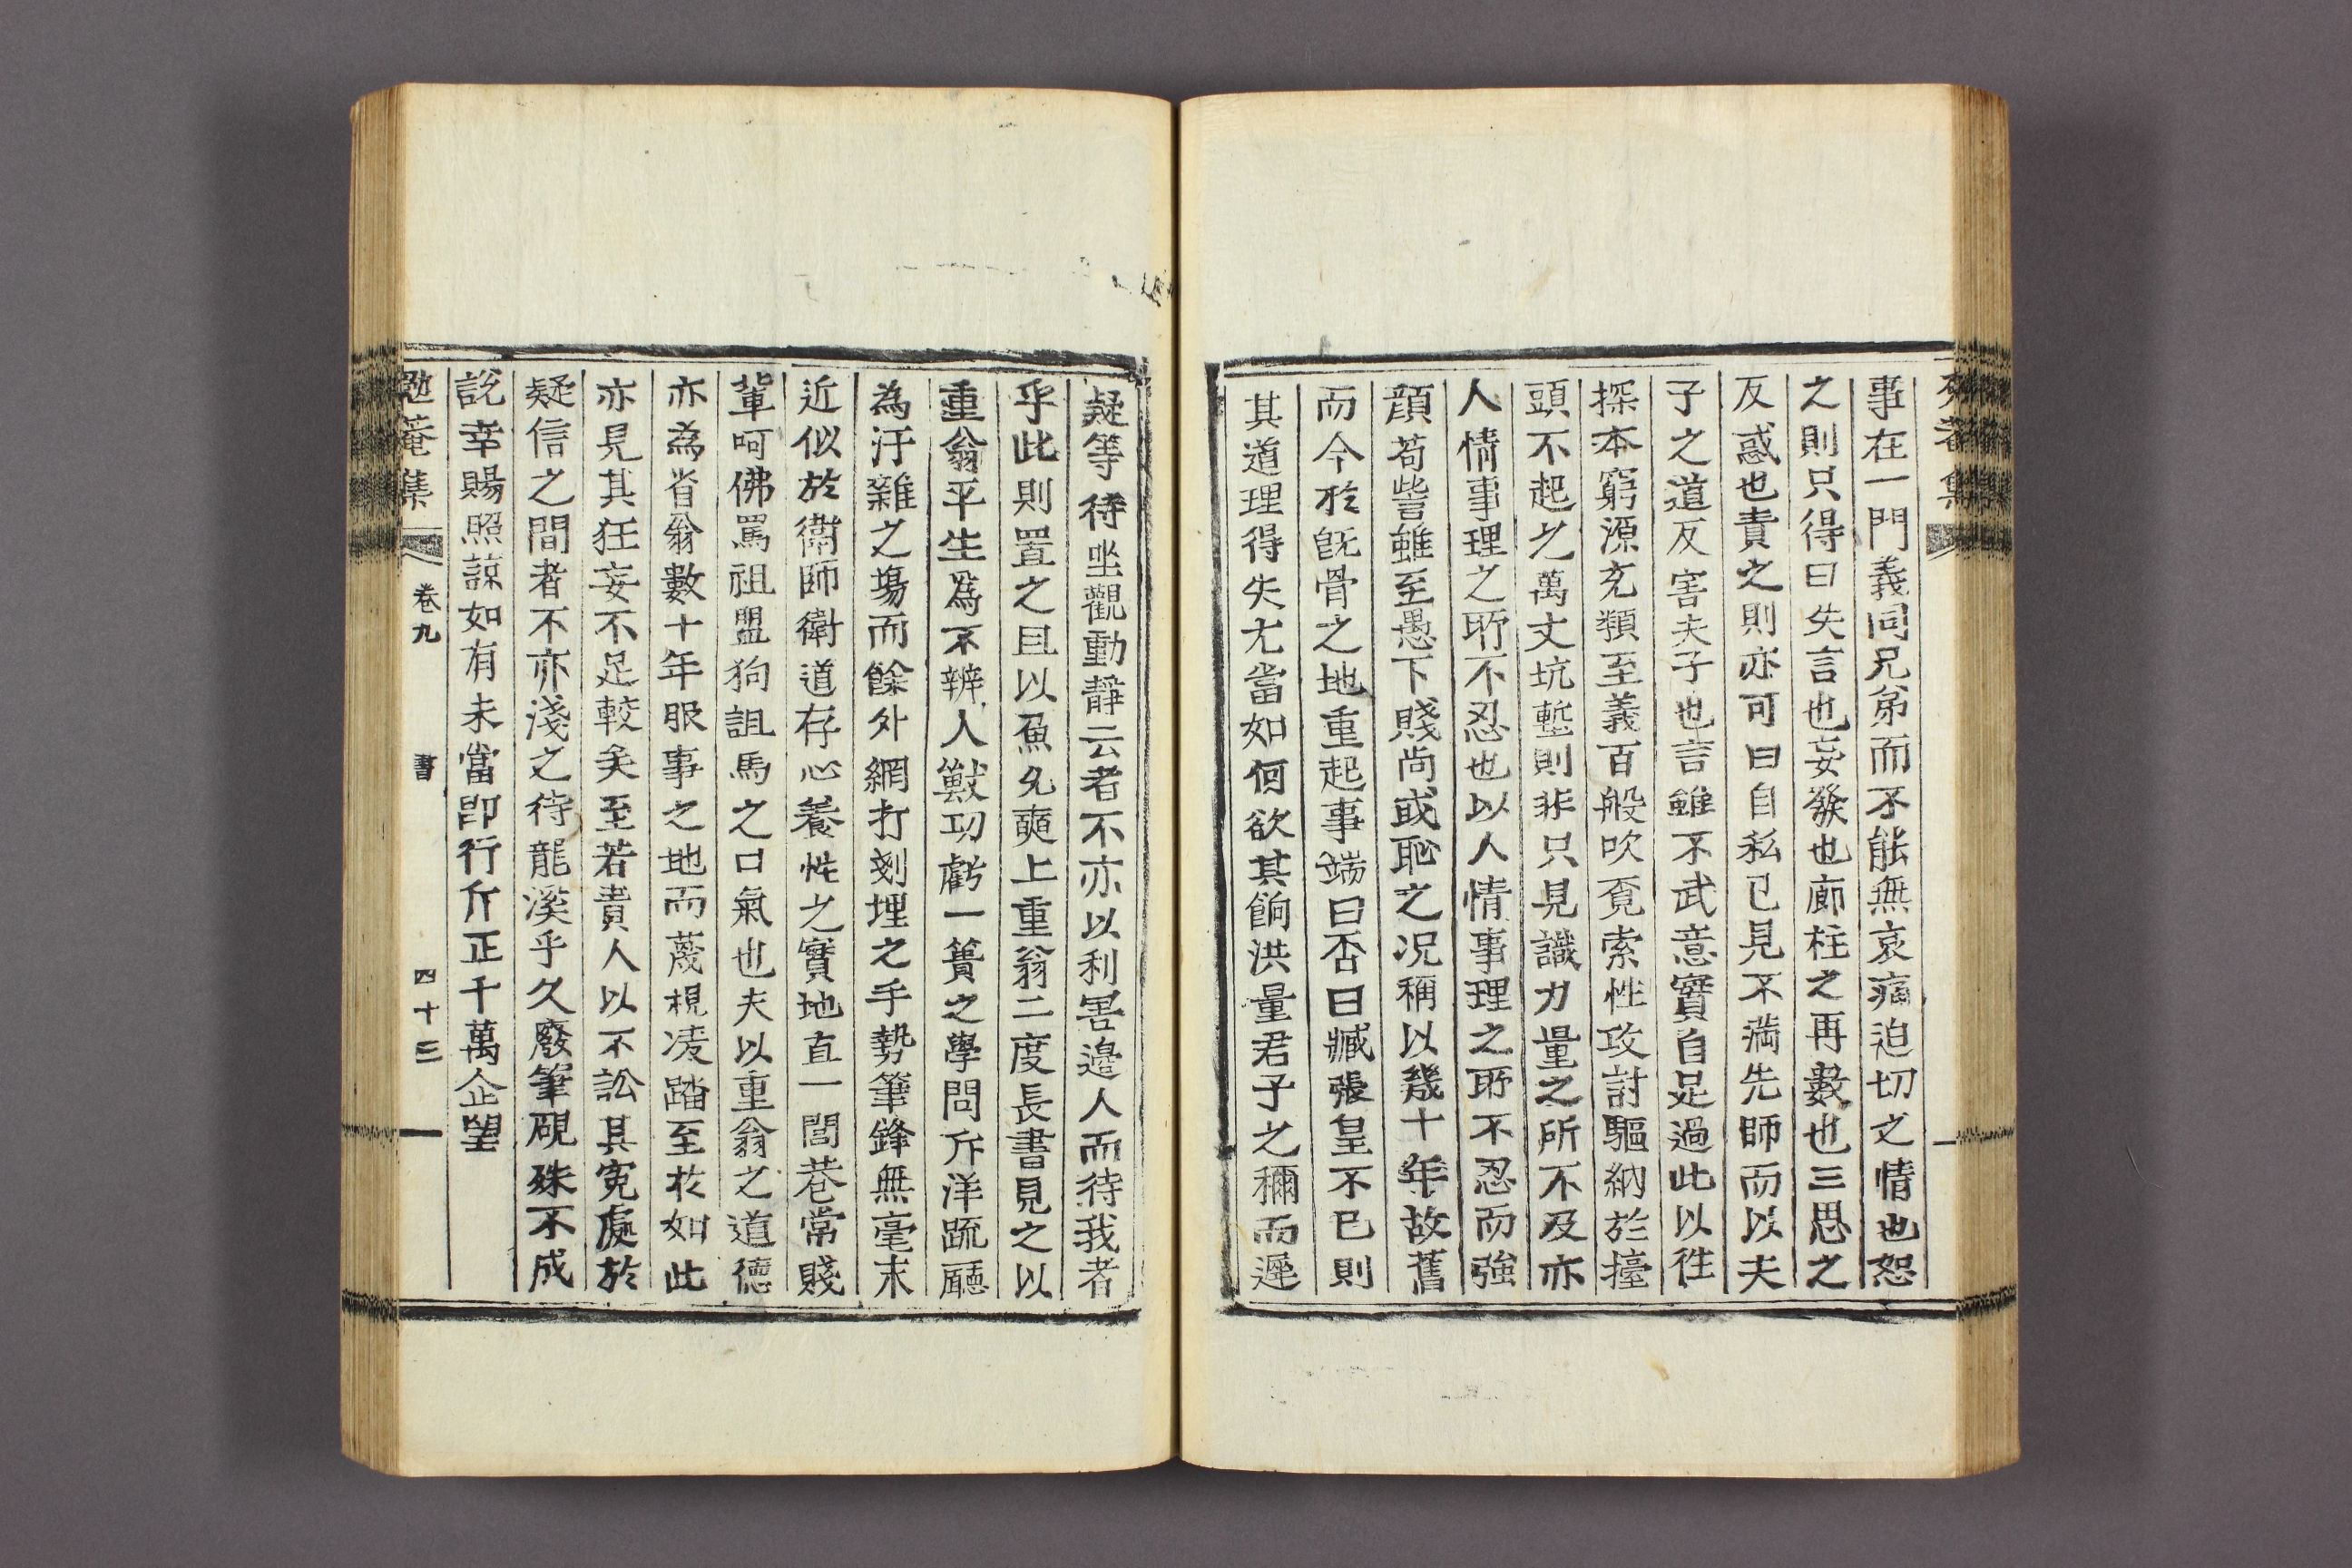 事在一門義同兄弟而不能無哀痛迫切之情也恕
之則只得曰失言也妄發也廊柱之再數也三思之
反惑也責之則亦可曰自私已見不滿先師而以夫
子之道反害夫子也言雖不武意實自足過此以徃
探本窮源充類至義百般吹覔索性攻討驅納於擡
頭不起之萬丈坑塹則非只見識力量之所不及亦
人情事理之所不忍也以人情事理之所不忍而強
顔苟訾雖至愚下賤尚或恥之况稱以幾十年故舊
而今於旣骨之地重起事端曰否曰臧張皇不已則
其道理得失尤當如何欲其餉洪量君子之穪而遲
疑等待坐觀動靜云者不亦以利害邊人而待我者
乎此則置之且以魚允奭上重翁二度長書見之以
重翁平生爲不辨人獸功虧一簣之學問斥洋䟽廳
為汙雜之塲而餘外網打剗埋之手勢筆鋒無毫末
近似於衛師衛道存心養性之實地直一閭巷常賤
輩呵佛罵祖盟狗詛馬之口氣也夫以重翁之道德
亦為省翁數十年服事之地而蔑視凌踏至於如此
亦見其狂妄不足較矣至若貴人以不訟其寃處於
疑信之間者不亦淺之待龍溪乎久廢筆硯殊不成
說幸賜照諒如有未當卽行斤正千萬企望
勉菴集 卷九 書 四十三